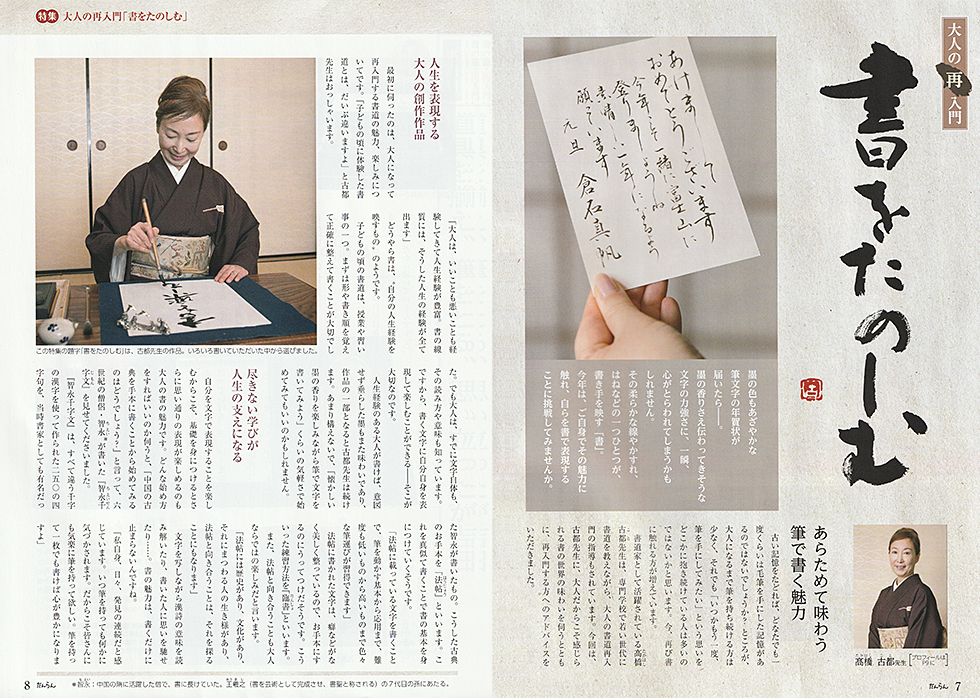 大人の再入門
書をたのしむ
あけまして
おめでとうございます
今年こそ一緒に富士山に
登りましょうね
素晴しい一年になるよう
願っています
元旦 倉石真帆
墨の色もあざやかな
筆文字の年賀状が
届いたら――。
墨の香りさえ伝わってきそうな
文字の力強さに、一瞬、
心がとらわれてしまうかも
しれません。
その柔らかな線やかすれ、
はねなどの一つひとつが、
書き手を映す「書」。
今年は、ご自身でその魅力に
触れ、自らを書で表現する
ことに挑戦してみませんか。
髙橋 古都先生
[プロフィールはP9に]
あらためて味わう
筆で書く魅力
古い記憶をたどれば、どなたでも一
度くらいは毛筆を手にした記憶があ
るのではないでしょうか？ところが、
大人になるまで筆を持ち続ける方は
少なく、それでも「いつかもう一度、
筆を手にしてみたい」という思いを
どこかに抱き続けている人は多いの
ではないかと思います。今、再び書
に触れる方が増えています。
書道家として活躍されている髙橋
古都先生は、専門学校で若い世代に
書道を教えながら、大人の書道再入
門の指導もされています。今回は、
古都先生に、大人だからこそ感じら
れる書の世界の味わいを伺うととも
に、再入門する方へのアドバイスを
いただきました。
だんらん 7
特集 大人の再入門「書をたのしむ」
人生を表現する
大人の創作作品
最初に伺ったのは、大人になって
再入門する書道の魅力、楽しみにつ
いてです。「子どもの頃に体験した書
道とは、だいぶ違いますよ」と古都
先生はおっしゃいます。
この特集の題字「書をたのしむ」は、古都先生の作品。いろいろ書いていただいた中から選びました。
「大人は、いいことも悪いことも経
験してきて人生経験が豊富。書の線
質には、そうした人生の経験が全て
出ます」
どうやら書は、“自分の人生経験を
映すもの”のようです。
子どもの頃の書道は、授業や習い
事の一つ。まずは形や書き順を覚え
て正確に整えて書くことが大切でし
た。でも大人は、すでに文字自体も、
その読み方や意味も知っています。
ですから、書く文字に自分自身を表
現して楽しむことができる――そこが
大切なのです。
人生経験のある大人が書けば、意図
せず垂らした墨もまた味わいであり、
作品の一部となると古都先生は続け
ます。あまり構えないで、「懐かしい
墨の香りを楽しみながら筆で文字を
書いてみよう」くらいの気軽さで始
めてみてもいいのかもしれません。
尽きない学びが
人生の支えになる
自分を文字で表現することを楽し
むからこそ、基礎を身につけるとさ
らに思い通りの表現が楽しめるのも
大人の書の魅力です。どんな始め方
をすればいいのか伺うと、「中国の古
典を手本に書くことから始めてみる
のはどうでしょう？」と言って、六
世紀の僧侶・智永＊が書いた『智永千
字文』を見せてくださいました。
『智永千字文』は、すべて違う千字
の漢字を使って作られた二五〇の四
字句を、当時書家としても有名だっ
た智永が書いたもの。こうした古典
のお手本を「法帖」といいます。こ
れを真似て書くことで書の基本を身
につけていくそうです。
「法帖の載っている文字を書くこと
で、筆を動かす基本から応用まで、難
度も低いものから高いものまで色々
な筆運びが習得できます」
法帖に書かれた文字は、癖などがな
く美しく整っているので、お手本にす
るのにうってつけだそうです。こう
いった練習方法を「臨書」といいます。
また、法帖と向き合うことも大人
ならではの楽しみだと言います。
「法帖には歴史があり、文化があり、
それにまつわる人の生き様があり、
法帖と向き合うことは、それを探る
ことにもなります」
文字を写しながら漢詩の意味を読
み解いたり、書いた人に思いを馳せ
たり……。書の魅力は、書くだけに
止まらないんですね。
「私自身、日々、発見の連続だと感
じています。いつ筆を持っても何かに
気づかされます。だからこそ皆さんに
も気楽に筆を持って欲しい。筆を持っ
て一枚でも書けば心が豊かになりま
すよ」
＊智永：中国の隋に活躍した僧で、書に長けていた。王羲之（書を芸術として完成させ、書聖と称される）の7代目の孫にあたる。
8 だんらん